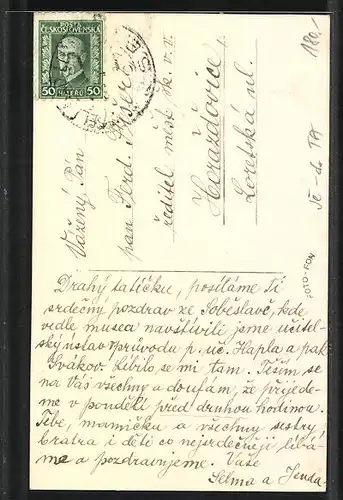 POŠTA
ČESKOSLOVENSKÁ
50 HALÉŘŮ 50
180,-
Vážený Pán
pan Ferd.
ředitel měšť. šk. v. v.
Horažďovice
Loretská ul.
FOTO-FON
Drahý tatíčku, posíláme Ti
srdečný pozdrav ze Soběslavě, kde
vedle musea navštívili jsme učitel-
ský ústav v průvodu p. uč. Hapla a pak
Svákov. Líbilo se mi tam. Těším se
na Vás všechny a doufám, že přijede-
me v pondělí před druhou hodinou.
Tebe, maminku a všechny sestry,
bratra i děti co nejsrdečněji líbá-
me a pozdravujeme. Vaše
Selma a Jenda.